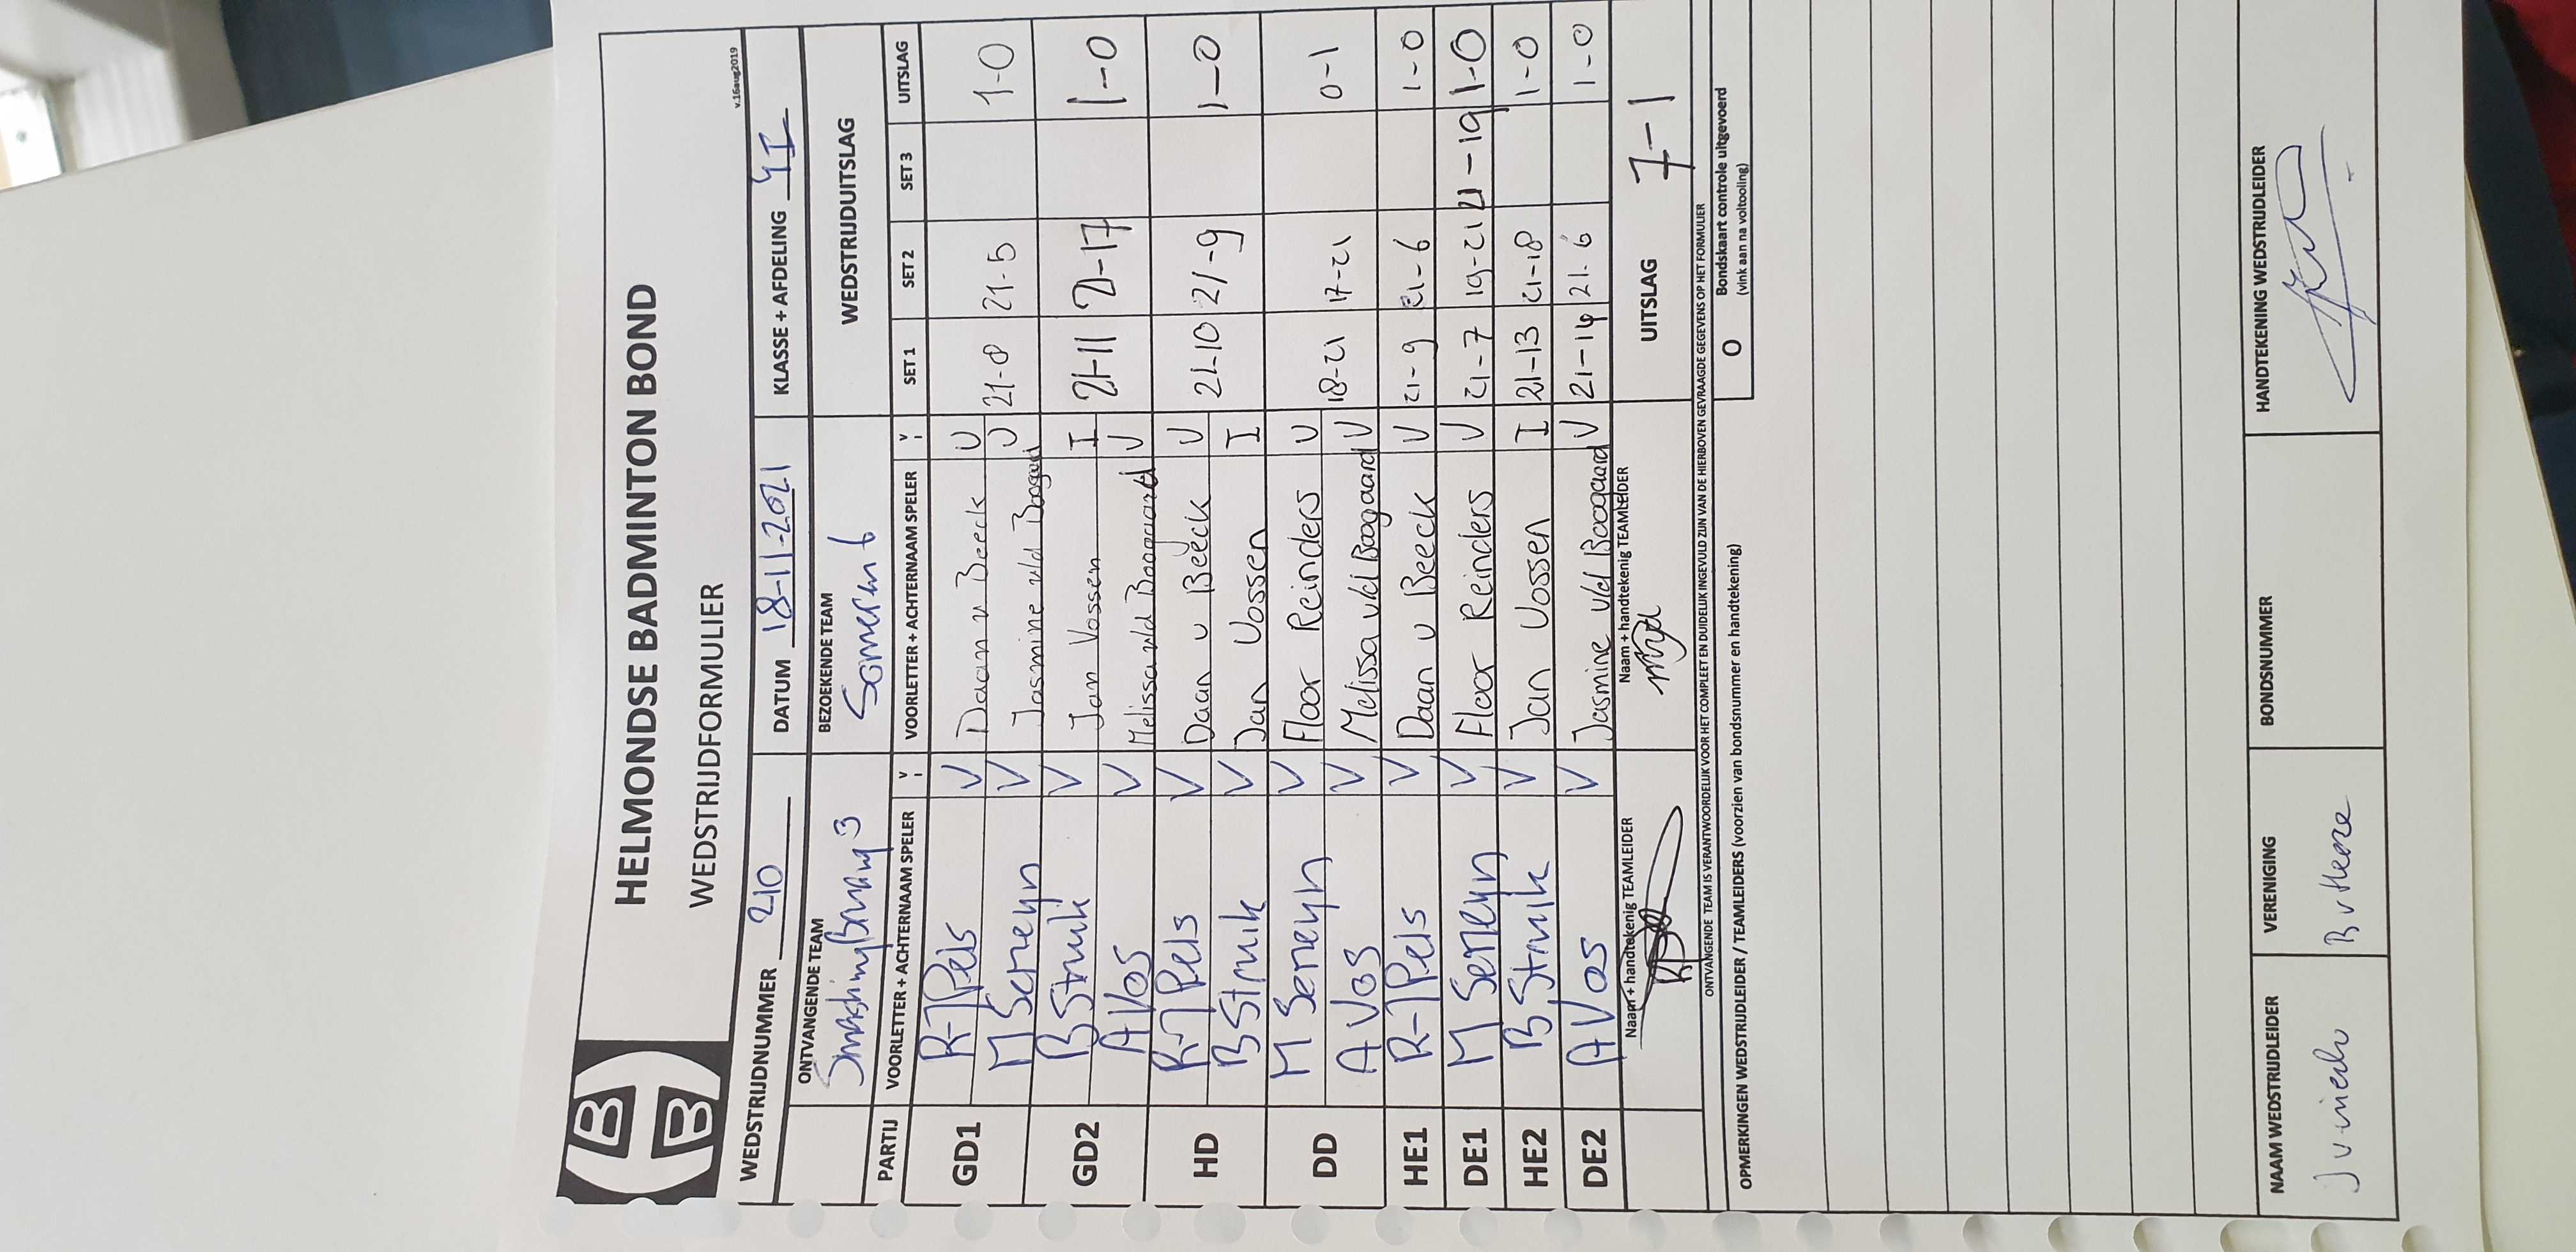 HELMONDSE BADMINTON BOND
WEDSTRIJDFORMULIER
v.16aug2019
WEDSTRIJDNUMMER 210 DATUM 18-11-2021 KLASSE + AFDELING 4I
ONTVANGENDE TEAM BEZOEKENDE TEAM WEDSTRIJDUITSLAG
3 Someren 6
PARTIJ VOORLETTER + ACHTERNAAM SPELER V I VOORLETTER + ACHTERNAAM SPELER V I SET 1 SET 2 SET 3 UITSLAG
GD1 R-J Pels V Daan v Beeck V 21-8 21-5 1-0
M Serreyn V Jasmine v/d Boogaard V
GD2 B Struik V Jan Vossen I 21-11 21-17 1-0
A Vos V Melissa v/d Boogaard V
HD R-J Pels V Daan v Beeck V 21-10 21-9 1-0
B Struik V Jan Vossen I
DD M Serreyn V Floor Reinders V 18-21 17-21 0-1
A Vos V Melissa v/d Boogaard V
HE1 R-J Pels V Daan v Beeck V 21-9 21-6 1-0
DE1 M Serreyn V Floor Reinders V 21-7 19-21 21-19 1-0
HE2 B Struik V Jan Vossen I 21-13 21-18 1-0
DE2 A Vos V Jasmine v/d Boogaard V 21-14 21-6 1-0
Naam + handtekenig TEAMLEIDER Naam + handtekenig TEAMLEIDER UITSLAG 7-1
ONTVANGENDE TEAM IS VERANTWOORDELIJK VOOR HET COMPLEET EN DUIDELIJK INGEVULD ZIJN VAN DE HIERBOVEN GEVRAAGDE GEGEVENS OP HET FORMULIER
OPMERKINGEN WEDSTRIJDLEIDER / TEAMLEIDERS (voorzien van bondsnummer en handtekening)
O Bondskaart controle uitgevoerd
(vink aan na voltooling)
NAAM WEDSTRIJDLEIDER VERENIGING BONDSNUMMER HANDTEKENING WEDSTRIJDLEIDER